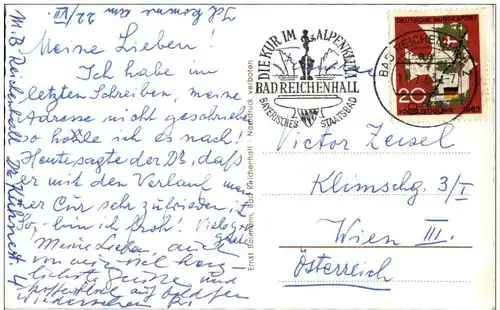 Ich komme am 22/VII.
Meine Lieben!
Ich habe im
letzten Schreiben, meine
Adresse nicht geschrieben
so hohle ich es nach!
Heute sagte der Dr, daß
er mit den Verlauf mei-
ner Cur sehr zufrieden ist
So, bin ich froh! Viele
Meine Lieben, auch
von mir viel herz-
lichste Grüsse und
hoffentlich auf baldiges
Wiedersehen
M. B. Reichenhall Dr Kühnestr. 4
Ernst Baumann, Bad Reichenhall - Nachdruck verboten
DIE KUR IM ALPENKLIMA
BAD REICHENHALL
BAYERISCHES STAATSBAD
BAD REICHENHALL
DEUTSCHE BUNDESPOST
20
1963
Victor Zeisel
Klimschg. 3/I
Wien III.
Österreich